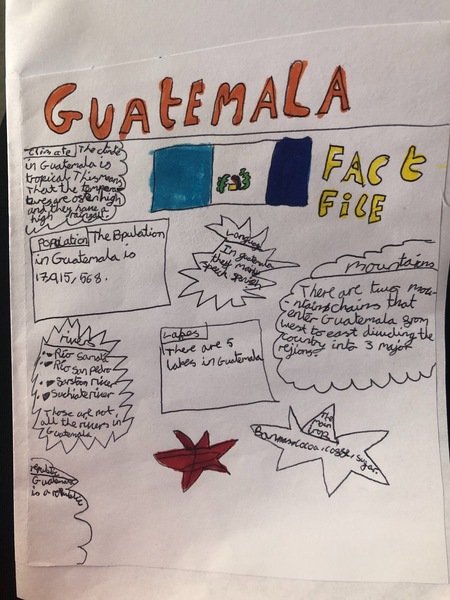 GUATEMALA
FACT
FILE
Climate The climate
in Guatemala is
tropical. This means
That the tempera-
tures are often high
and they have a
high rainfall.
Population The Population
in Guatemala is
17,915,568.
Language
In guatemala
they mainly
speak spanish
mountains
There are two mou-
ntains chains that
enter Guatemala from
west to east dividing the
country into 3 major
regions.
rivers
Rio
Rio san pedro
Sarstun river
Suchiate river
Those are not
all the rivers in
Guatemala
Lakes
There are 5
lakes in Guatemala
The
main
crops
cocoa, coffee, sugar.
republic
Guatemala
is a republic